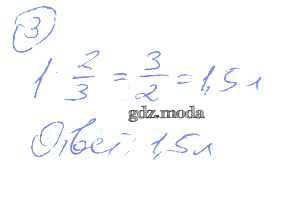 3
1 : 2/3 = 3/2 = 1,5 л
gdz.moda
Ответ: 1,5 л